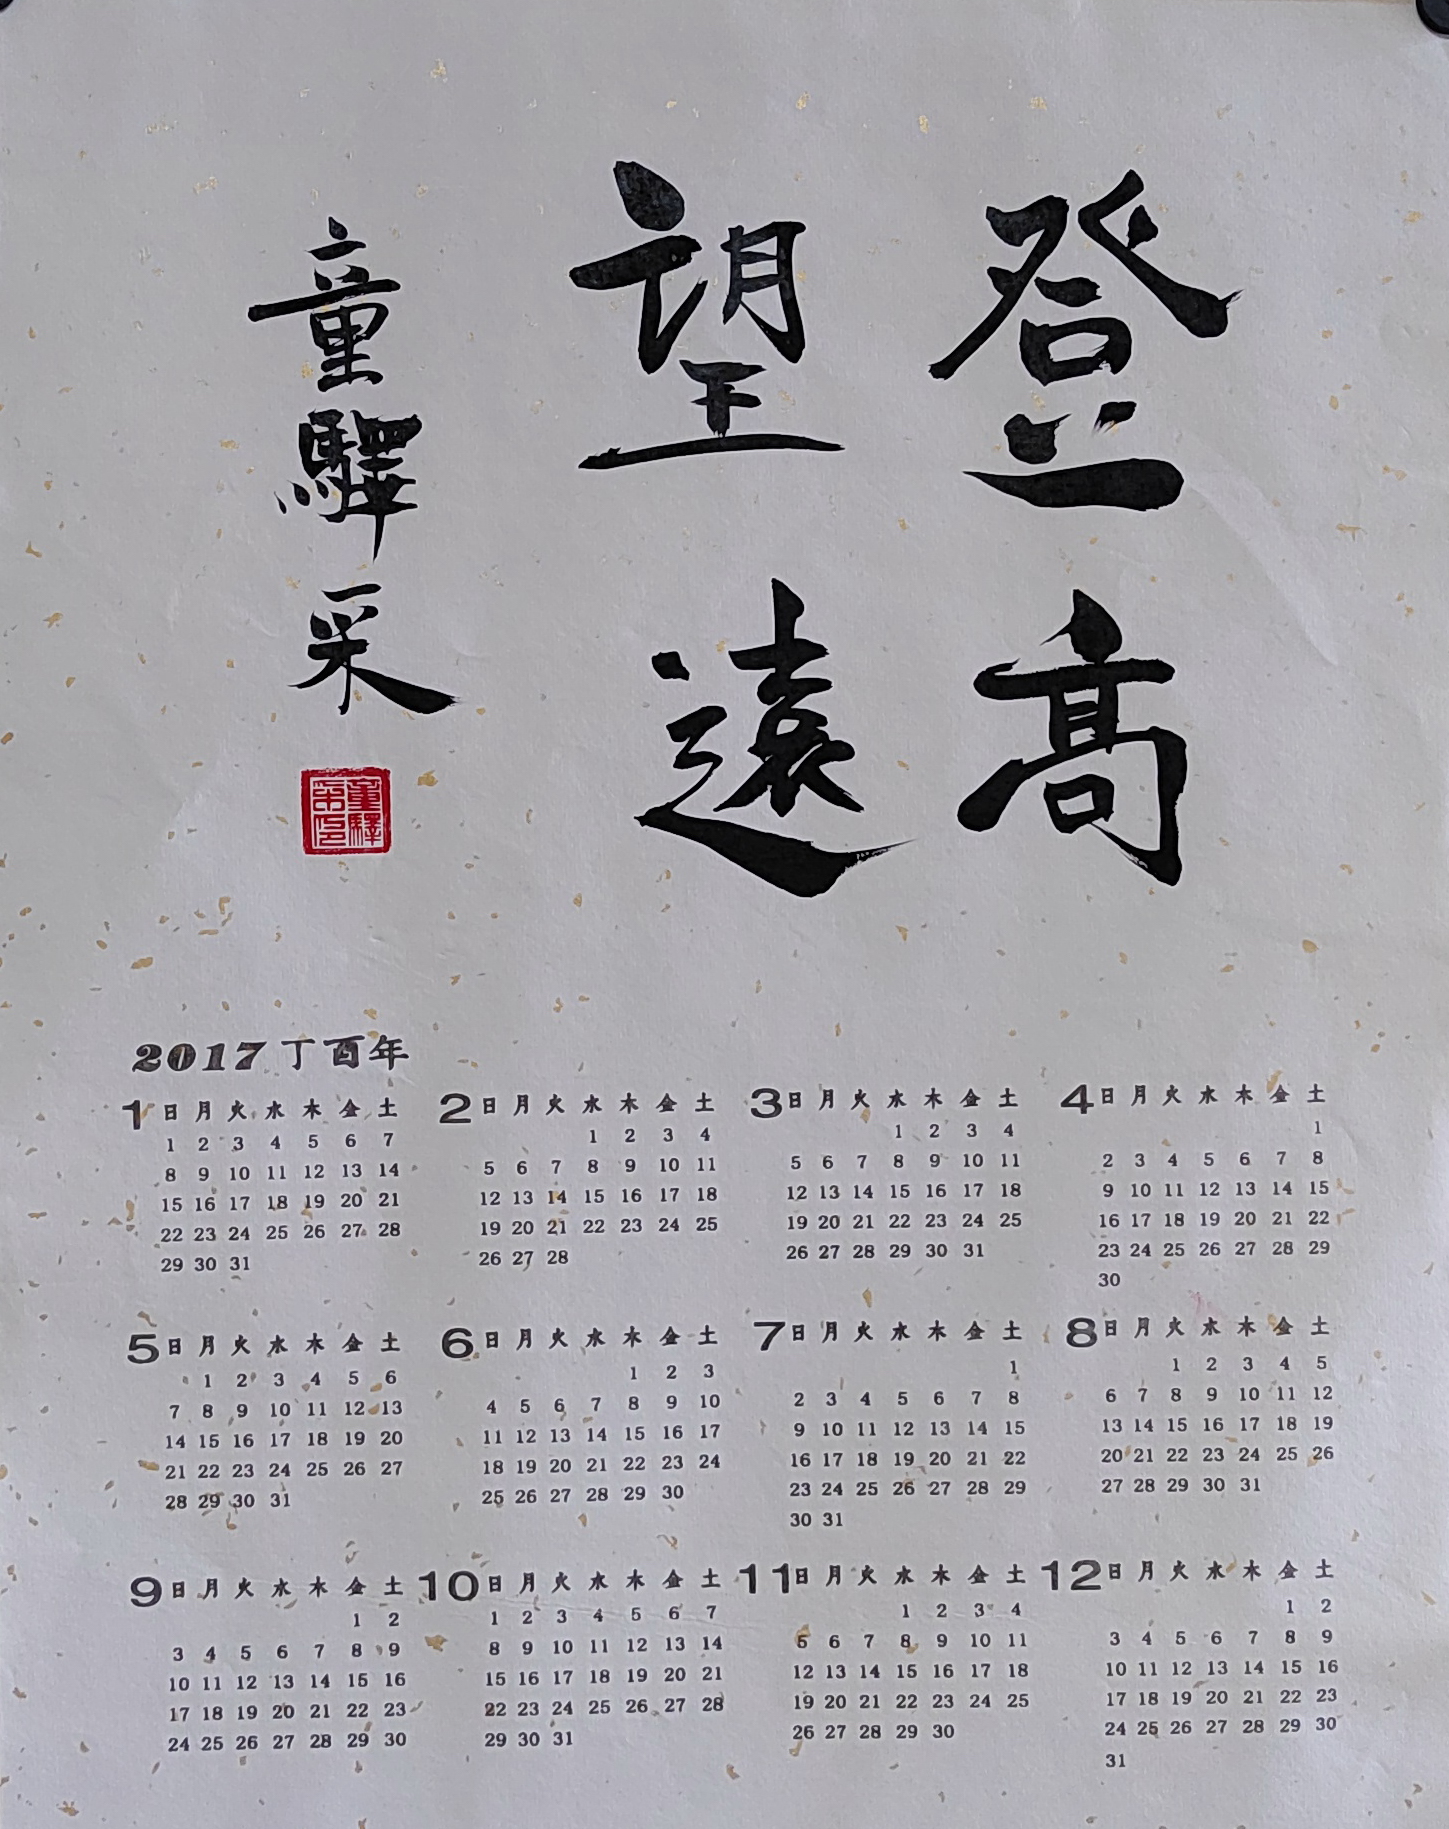 登高
望遠
童驛采
童驛
采印
2017 丁酉年
1 日 月 火 水 木 金 土
1 2 3 4 5 6 7
8 9 10 11 12 13 14
15 16 17 18 19 20 21
22 23 24 25 26 27 28
29 30 31
2 日 月 火 水 木 金 土
1 2 3 4
5 6 7 8 9 10 11
12 13 14 15 16 17 18
19 20 21 22 23 24 25
26 27 28
3 日 月 火 水 木 金 土
1 2 3 4
5 6 7 8 9 10 11
12 13 14 15 16 17 18
19 20 21 22 23 24 25
26 27 28 29 30 31
4 日 月 火 水 木 金 土
1
2 3 4 5 6 7 8
9 10 11 12 13 14 15
16 17 18 19 20 21 22
23 24 25 26 27 28 29
30
5 日 月 火 水 木 金 土
1 2 3 4 5 6
7 8 9 10 11 12 13
14 15 16 17 18 19 20
21 22 23 24 25 26 27
28 29 30 31
6 日 月 火 水 木 金 土
1 2 3
4 5 6 7 8 9 10
11 12 13 14 15 16 17
18 19 20 21 22 23 24
25 26 27 28 29 30
7 日 月 火 水 木 金 土
1
2 3 4 5 6 7 8
9 10 11 12 13 14 15
16 17 18 19 20 21 22
23 24 25 26 27 28 29
30 31
8 日 月 火 水 木 金 土
1 2 3 4 5
6 7 8 9 10 11 12
13 14 15 16 17 18 19
20 21 22 23 24 25 26
27 28 29 30 31
9 日 月 火 水 木 金 土
1 2
3 4 5 6 7 8 9
10 11 12 13 14 15 16
17 18 19 20 21 22 23
24 25 26 27 28 29 30
10 日 月 火 水 木 金 土
1 2 3 4 5 6 7
8 9 10 11 12 13 14
15 16 17 18 19 20 21
22 23 24 25 26 27 28
29 30 31
11 日 月 火 水 木 金 土
1 2 3 4
5 6 7 8 9 10 11
12 13 14 15 16 17 18
19 20 21 22 23 24 25
26 27 28 29 30
12 日 月 火 水 木 金 土
1 2
3 4 5 6 7 8 9
10 11 12 13 14 15 16
17 18 19 20 21 22 23
24 25 26 27 28 29 30
31